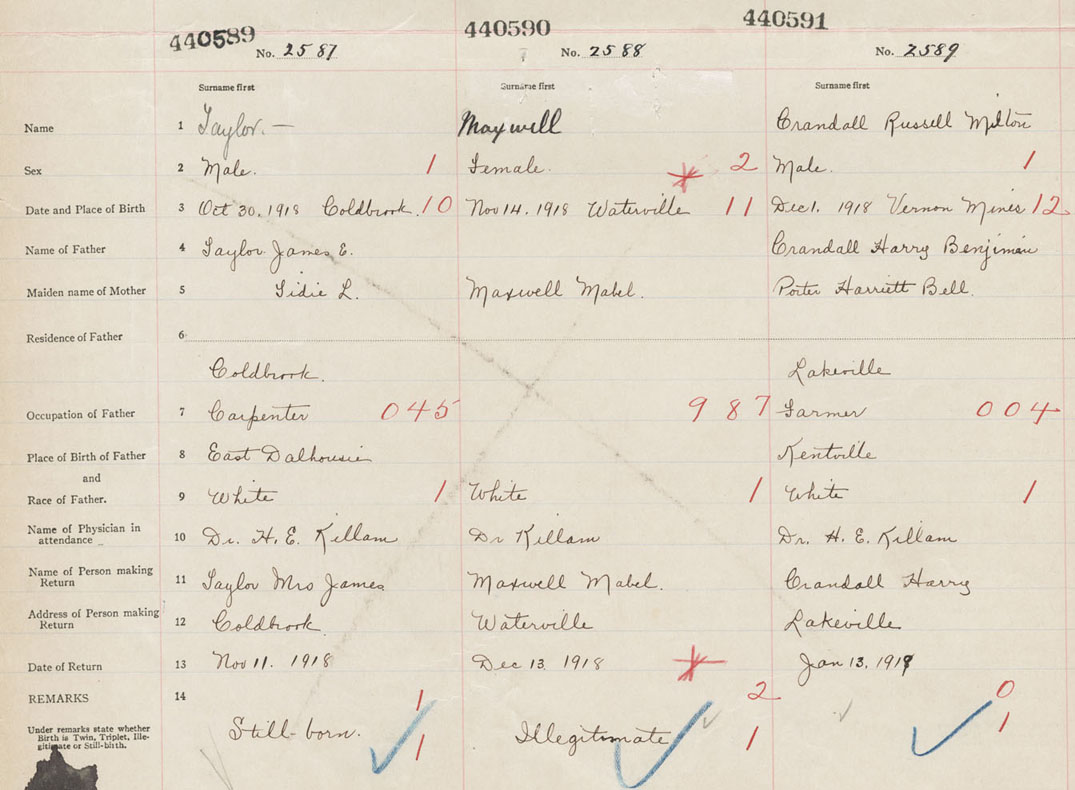 440589 440590 440591
No. 2587 No. 2588 No. 2589
Surname first Surname first Surname first
Name 1 Taylor. — Maxwell Crandall Russell Milton
Sex 2 Male. 1 Female. 2 Male. 1
Date and Place of Birth 3 Oct 30. 1918 Coldbrook. 10 Nov 14. 1918 Waterville 11 Dec 1. 1918 Vernon Mines 12
Name of Father 4 Taylor James E. Crandall Harry Benjiman
Maiden name of Mother 5 Lidie L. Maxwell Mabel. Porter Harriett Bell.
Residence of Father 6
Coldbrook. Lakeville
Occupation of Father 7 Carpenter 045 987 Farmer 004
Place of Birth of Father 8 East Dalhousie Kentville
and
Race of Father. 9 White 1 White 1 White 1
Name of Physician in
attendance 10 Dr. H. E. Killam Dr Killam Dr. H. E. Killam
Name of Person making
Return 11 Taylor Mrs James Maxwell Mabel. Crandall Harry
Address of Person making
Return 12 Coldbrook. Waterville Lakeville
Date of Return 13 Nov 11. 1918 Dec 13. 1918 Jan 13. 1919
REMARKS 14 1 2 0
Under remarks state whether
Birth is Twin, Triplet, Ille-
gitimate or Still-birth.
Still-born. 1 Illegitimate 1 1